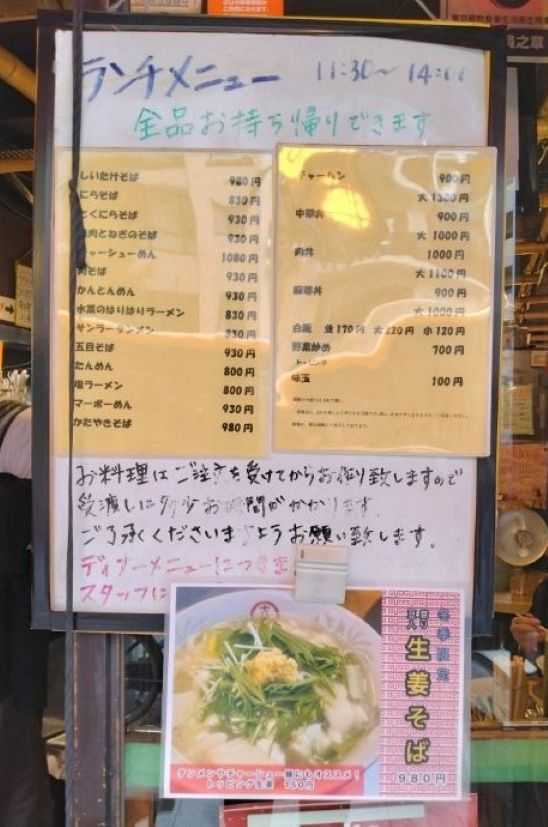 ランチメニュー 11:30〜14:00
全品お持ち帰りできます
しいた汁そば 980円
にらそば 830円
とくにらそば 930円
肉とねぎのそば 930円
チャーシューめん 1080円
肉そば 930円
かんとんめん 930円
水菜のはりはりラーメン 830円
サンラータンメン 930円
五目そば 930円
たんめん 800円
塩ラーメン 800円
マーボーめん 930円
かたやきそば 980円
チャーハン 900円
大 1300円
中華丼 900円
大 1000円
肉丼 1000円
大 1100円
麻婆丼 900円
大 1000円
白飯 並170円 大220円 小120円
野菜炒め 700円
トッピング
味玉 100円
お料理はご注文を受けてからお作り致しますので
受渡しに多少お時間がかかります。
ご了承くださいますようお願い致します。
ディナーメニューにつき
スタッフに
春季限定
生姜そば
980円
タンメンやチャーシュー麺にもオススメ!
トッピング生姜 150円